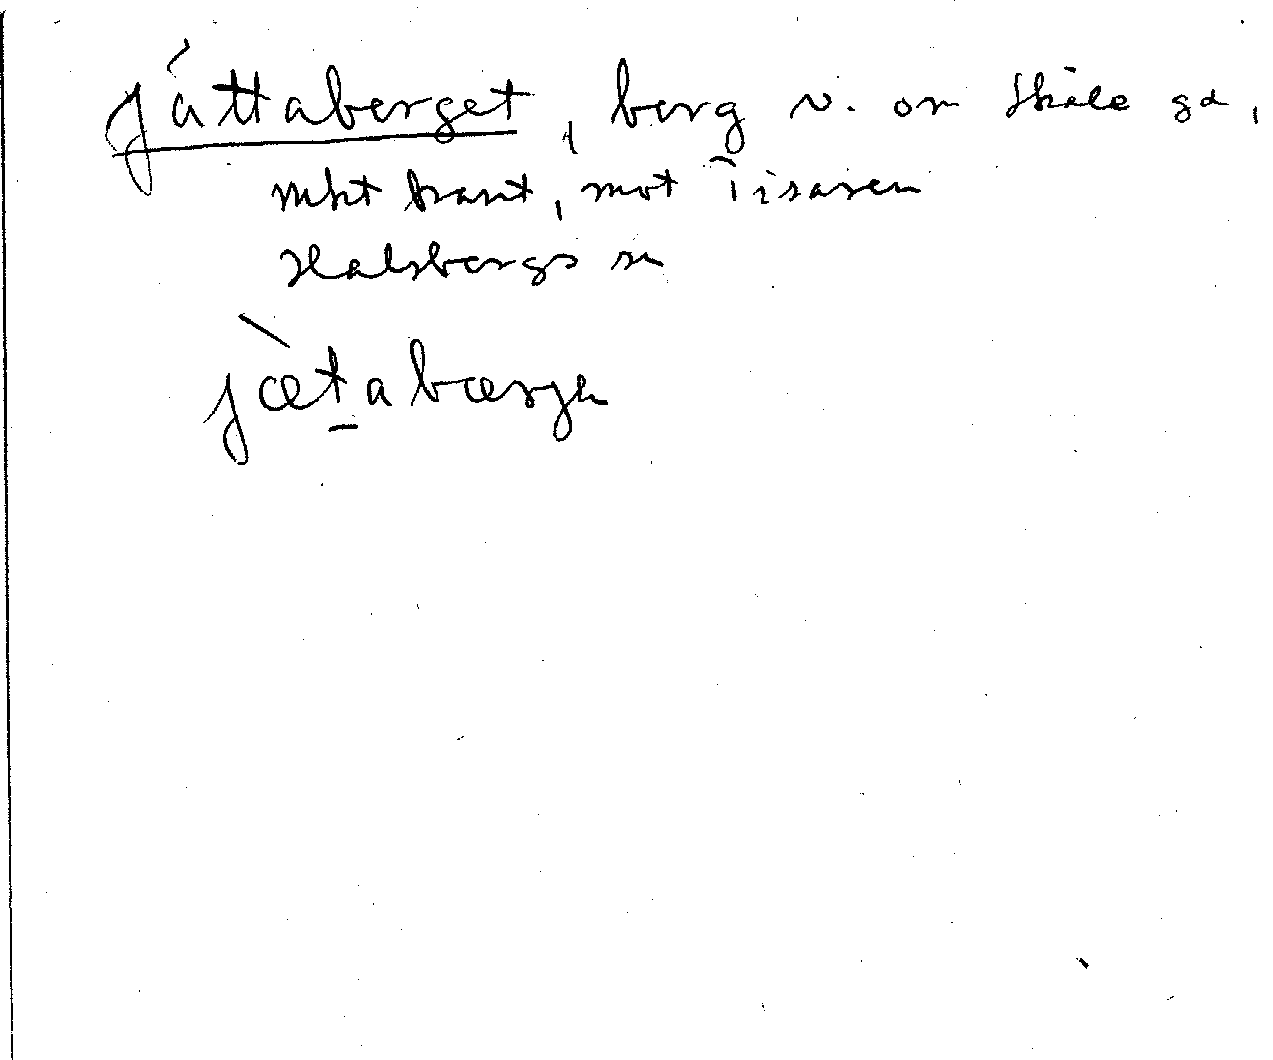 Jättaberget, berg v. om Skåle gd,
mkt brant, mot Tisaren
Hallsbergs sn
jætabærjə